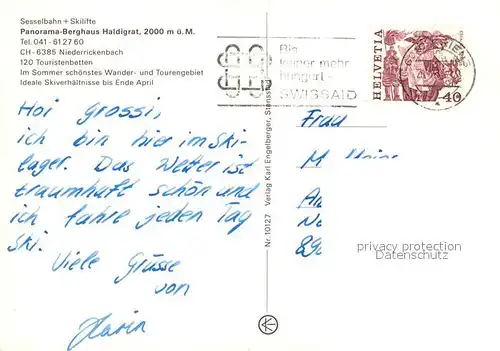 Sesselbahn + Skilifte
Panorama-Berghaus Haldigrat, 2000 m ü. M.
Tel. 041 - 61 27 60
CH - 6385 Niederrickenbach
120 Touristenbetten
Im Sommer schönstes Wander- und Tourengebiet
Ideale Skiverhältnisse bis Ende April
Hoi Grossi,
ich bin hier im Ski-
lager. Das Wetter ist
traumhaft schön und
ich fahre jeden Tag
Ski.
Viele Grüsse
von
Karin
Nr. 10127 Verlag Karl Engelberger, Stansstad
Bis
keiner mehr
hungert -
SWISSAID
HELVETIA
40
Frau
M
privacy protection
Datenschutz